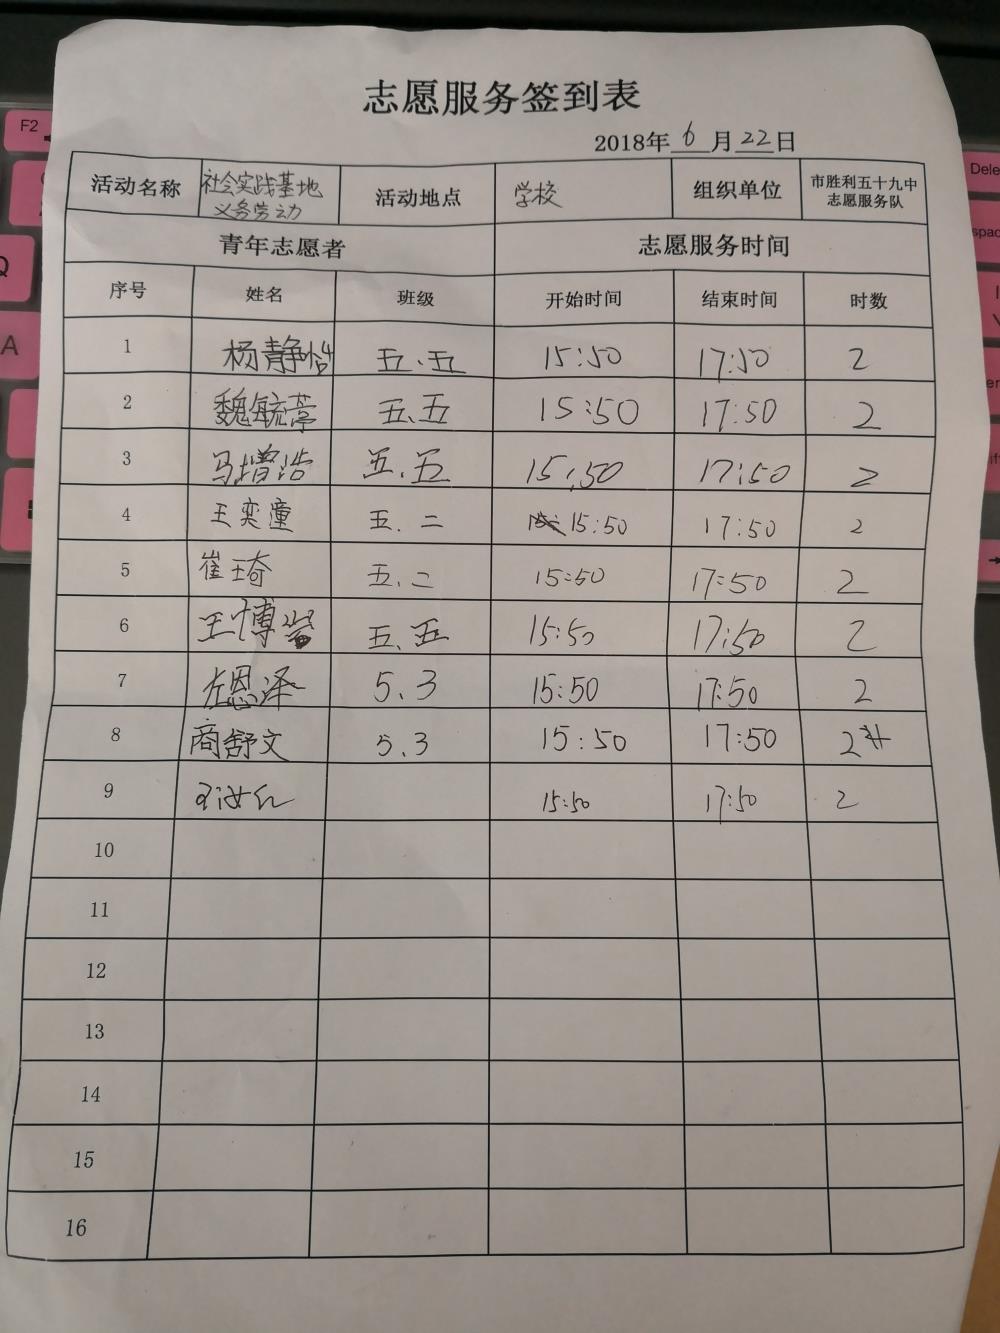 志愿服务签到表
2018年 6 月 22 日
活动名称 社会实践基地 义务劳动 活动地点 学校 组织单位 市胜利五十九中 志愿服务队
青年志愿者 志愿服务时间
序号 姓名 班级 开始时间 结束时间 时数
1 杨静怡 五.五 15:50 17:50 2
2 魏毓葶 五.五 15:50 17:50 2
3 马增浩 五.五 15:50 17:50 2
4 王奕潼 五.二 15:50 17:50 2
5 崔琦 五.二 15:50 17:50 2
6 王博 五.五 15:50 17:50 2
7 左恩泽 5.3 15:50 17:50 2
8 商舒文 5.3 15:50 17:50 2
9 15:50 17:50 2
10
11
12
13
14
15
16
F2
Q
A
Dele